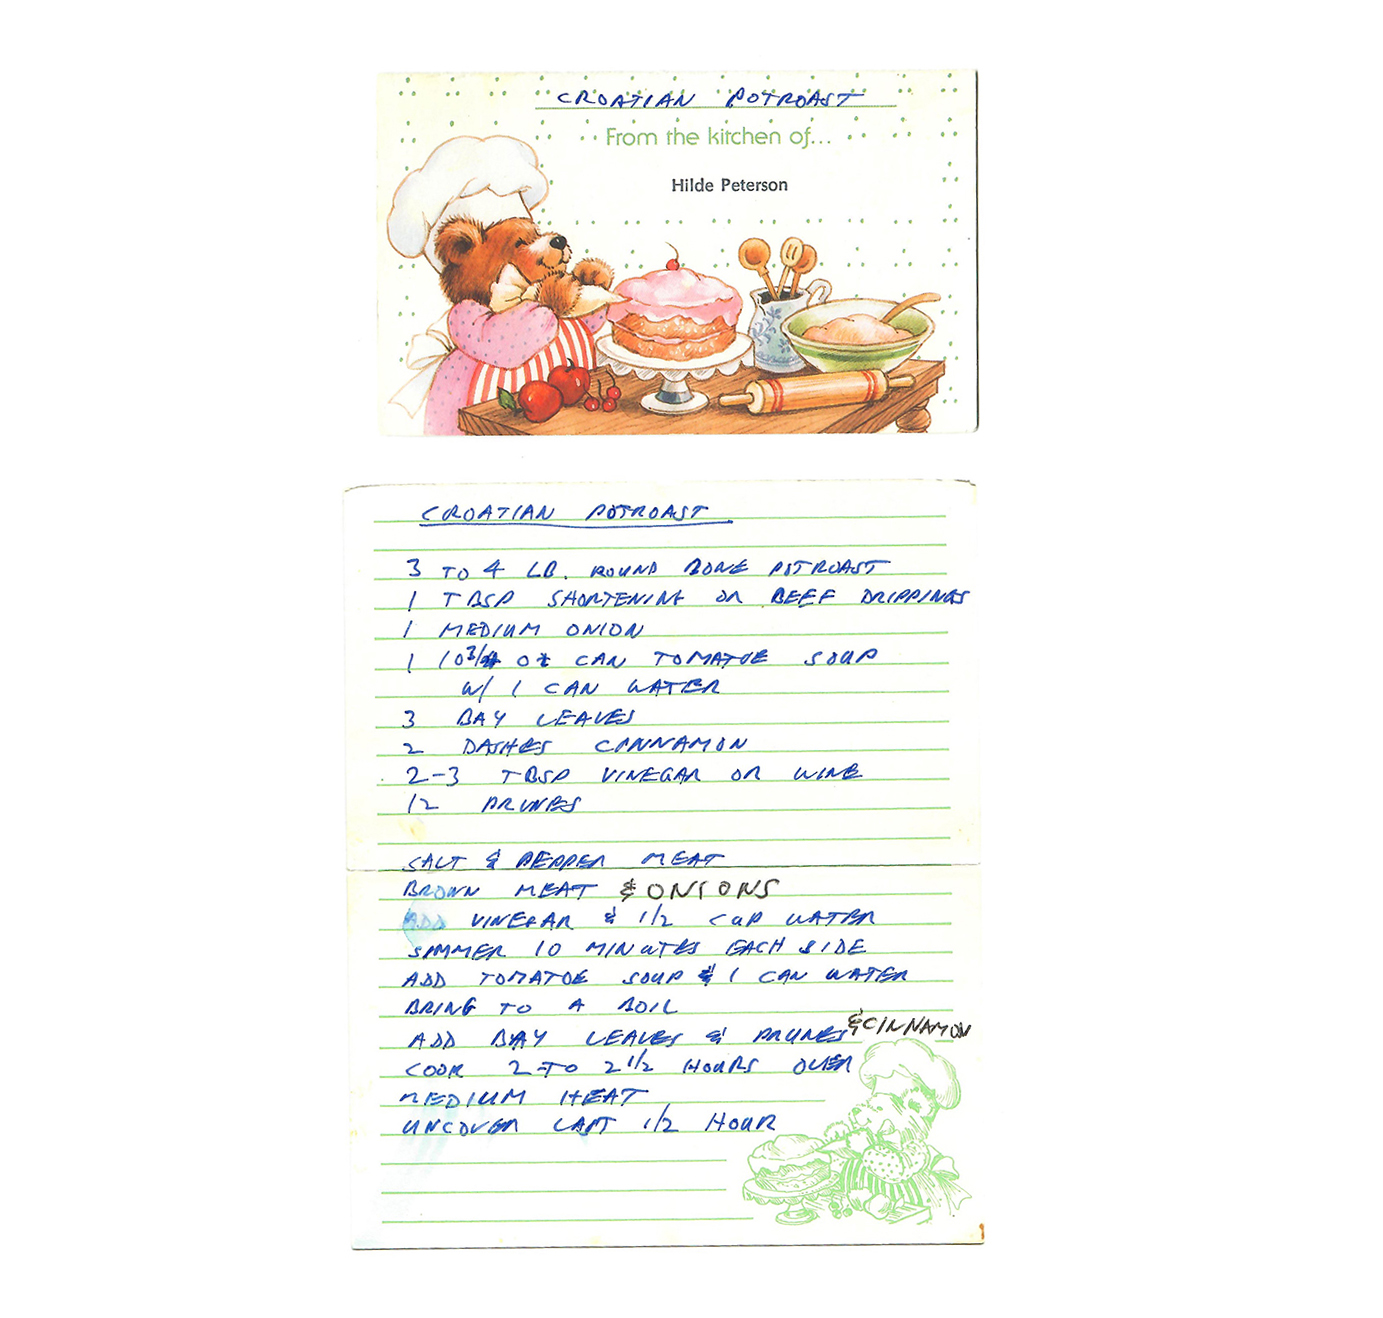 CROATIAN POTROAST
From the kitchen of...
Hilde Peterson
CROATIAN POTROAST
3 TO 4 LB. ROUND BONE POTROAST
1 TBSP SHORTENING OR BEEF DRIPPINGS
1 MEDIUM ONION
1 10 3/4 OZ CAN TOMATOE SOUP
W/ 1 CAN WATER
3 BAY LEAVES
2 DASHES CINNAMON
2-3 TBSP VINEGAR OR WINE
12 PRUNES
SALT & PEPPER MEAT
BROWN MEAT & ONIONS
ADD VINEGAR & 1/2 CUP WATER
SIMMER 10 MINUTES EACH SIDE
ADD TOMATOE SOUP & 1 CAN WATER
BRING TO A BOIL
ADD BAY LEAVES & PRUNES & CINNAMON
COOK 2 TO 2 1/2 HOURS OVER
MEDIUM HEAT
UNCOVER LAST 1/2 HOUR